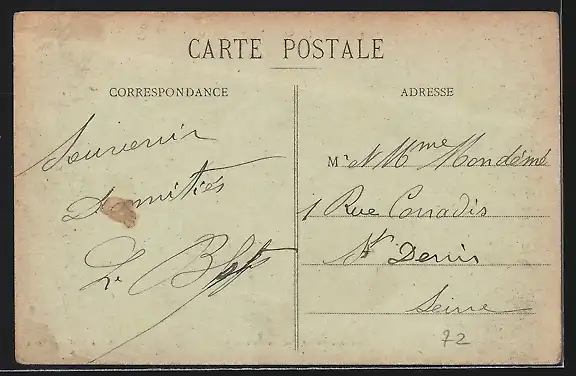 CARTE POSTALE
CORRESPONDANCE
ADRESSE
Souvenir
D'amitiés
Mr & Mme Mondémé
1 Rue Conradis
St Denis
Seine
72